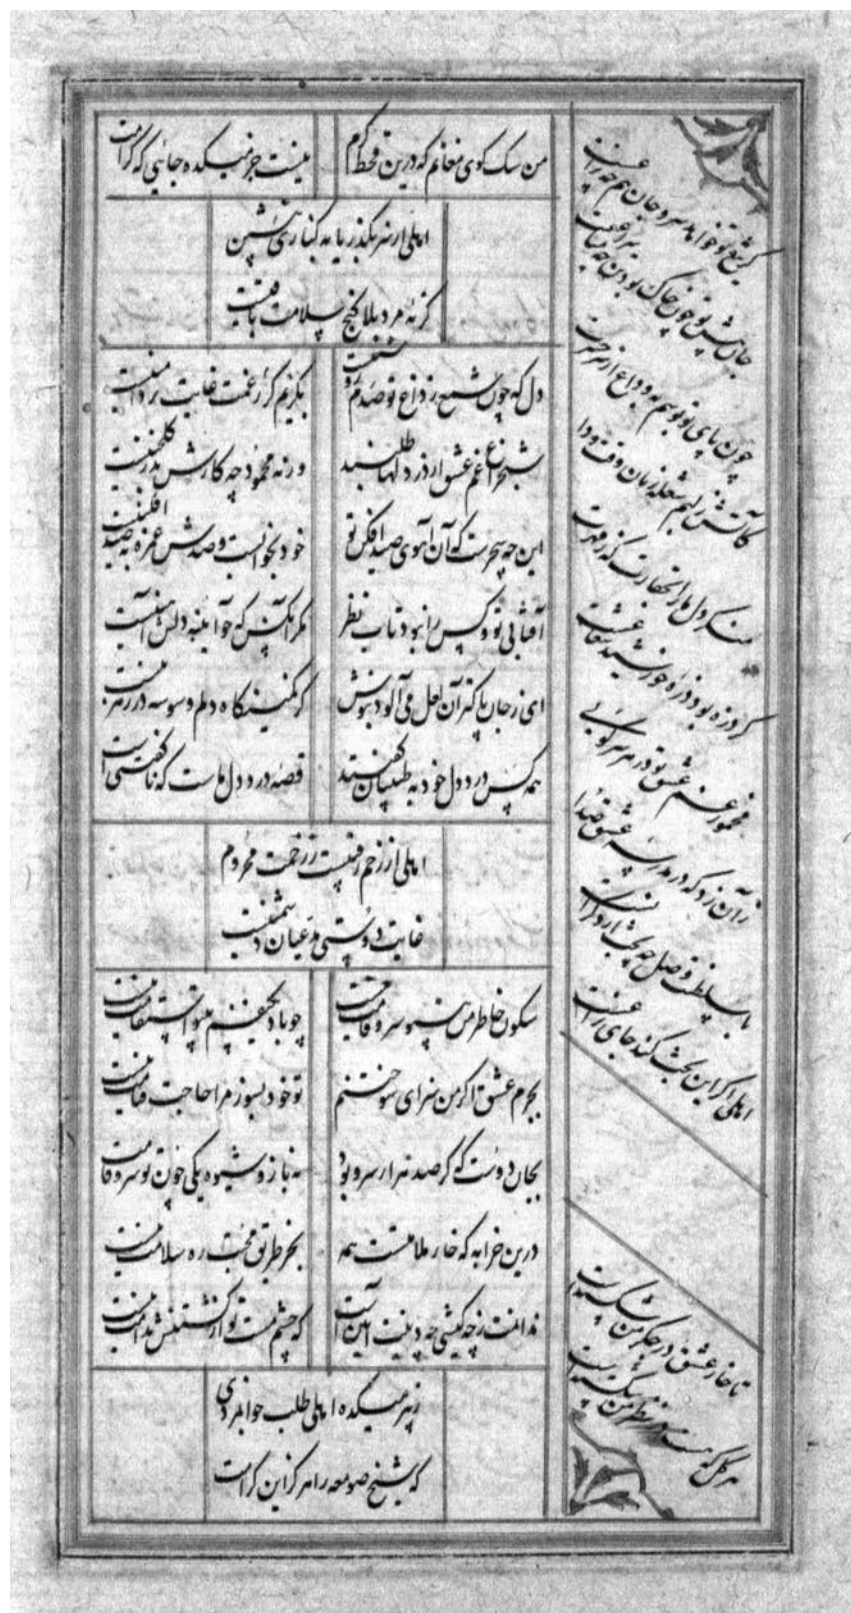 من سک کوی مغانم که درین قحط کرم
نیست جز میکده جائیی که کرامت
اهلی از سر بگذر یا به کناری بنشین
گر نهٔ مرد بلا کنج سلامت باقیست
دل که چون شمع ز داغ تو صدم روشنیست
بکریم کر ز غمت غایت تر دامنیست
شبچراغ غم عشق از در دلها طلبند
ورنه محمود چه کارش بدر کلخنیست
این چه سحرست که آن آهوی صید افکن تو
خود بخوابست و صدش غمزه به صید افکنیست
آفتابی تو و کس را نبود تاب نظر
مکر آنکس که چو آیینه دلش آهنیست
ای ز جان پاکتر آن لعل می آلود بنوش
کر کمینکاه دلم وسوسه در رهزنیست
همه کس درد دل خود به طبیبان گفتند
قصهٔ درد دل ماست که ناگفتنیست
اهلی از زخم رقیبست ز زخمت محروم
غایت دوستی مدعیان دشمنیست
سکون خاطر من بی تو سرو قامت نیست
چو باد یکنفسم بی تو استقامت نیست
بجرم عشق تو اگر من سزای سوختنم
تو خود بسوز مرا حاجت قیامت نیست
بجان دوست که کر صد هزار سرو بود
به ناز و شیوه یکی چون تو سرو قامت نیست
درین خرابه که خار ملامتست همه
بجز طریق محبت ره سلامت نیست
ندانمت ز چه کیشی چه دینت آیین است
که چشم مست تو از کشتنش ندامت نیست
ز پیر میکده اهلی طلب جوانمردی
که شیخ صومعه را هرگز این کرامت
کر تیغ تو خواهد سر و جان هم چه نزاعست
جان پیش تو چون خاک بود این چه متاعست
چون پای تو بوسم به وداع از سر حسرت
کآتش ز لبم شعله زنان وقت وداعست
منکر دل ما را بحقارت که ز مهرت
کر ذره بود ذرهٔ خورشید شعاعست
مخمور غم عشق تو در هر سر کویی
زآن زد که در مدرسهٔ عشق
با سلطنت وصل چه
اهلی اگر این بحث کند جای نزاعست
تا خار عشق در جگر من شکسته است
هر گل که هست در نظر من